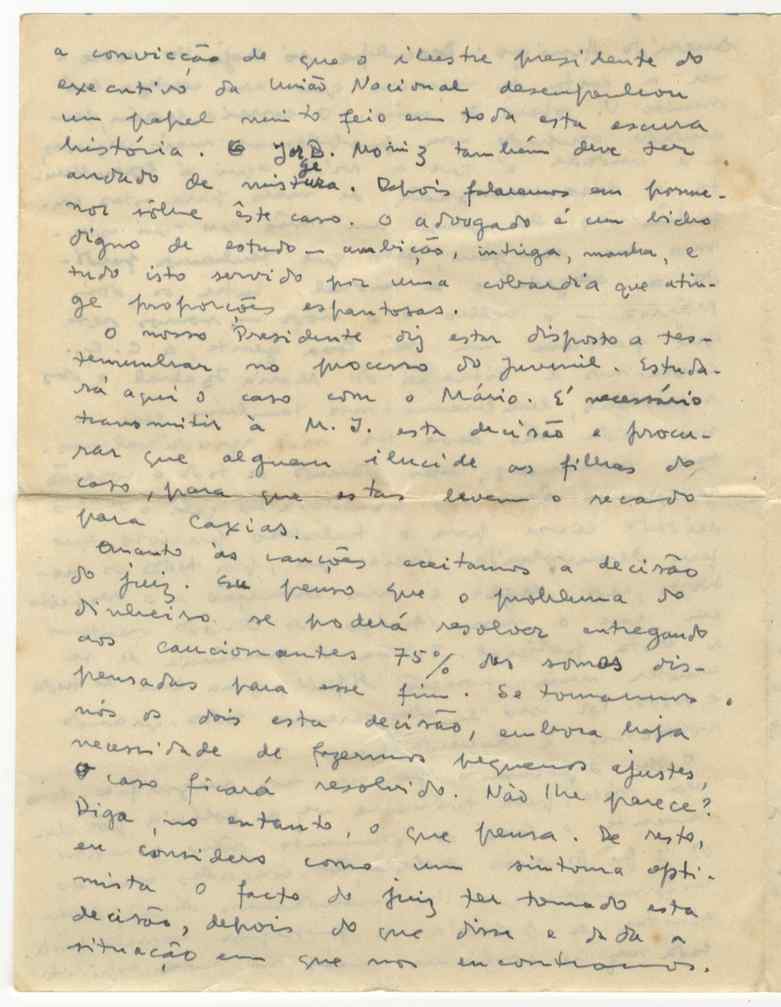 a convicção de que o ilustre presidente do
executivo da União Nacional desempenhou
um papel muito feio em toda esta escura
história. O Jorge B. Moniz também deve ter
andado de mistura. Depois falaremos em porme-
nor sôbre êste caso. O advogado é um bicho
digno de estudo — ambição, intriga, manha, e
tudo isto servido por uma cobardia que atin-
ge proporções espantosas.
O nosso Presidente diz estar disposto a tes-
temunhar no processo do Juvenil. Estuda-
rá aqui o caso com o Mário. É necessário
transmitir à M. J. esta decisão e procu-
rar que alguem ilucide as filhas do
caso, para que estas levem o recado
para Caxias.
Quanto às cauções aceitamos a decisão
do juiz. Eu penso que o problema do
dinheiro se poderá resolver entregando
aos caucionantes 75% das somas dis-
pensadas para esse fim. Se tomarmos
nós os dois esta decisão, embora haja
necessidade de fazermos pequenos ajustes,
o caso ficará resolvido. Não lhe parece?
Diga, no entanto, o que pensa. De resto,
eu considero como um sintoma opti-
mista o facto do juiz ter tomado esta
decisão, depois do que disse e dada a
situação em que nos encontramos.